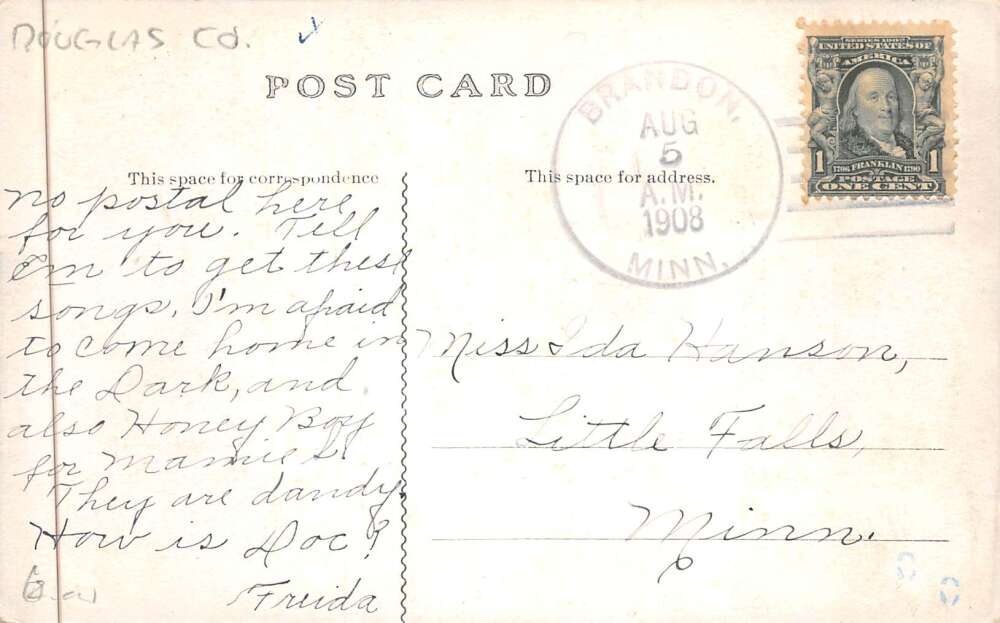 DOUGLAS CO.
POST CARD
BRANDON,
AUG
5
A.M.
1908
MINN.
SERIES 1902
UNITED STATES OF
AMERICA
1 FRANKLIN 1
1706 1790
POSTAGE
ONE CENT
This space for correspondence
This space for address.
no postal here
for you. Tell
Em to get these
songs, I'm afraid
to come home in
the Dark, and
also Honey Boy
for Mamie L.
They are dandy.
How is Doc?
Freida
Miss Ida Hanson,
Little Falls,
Minn.